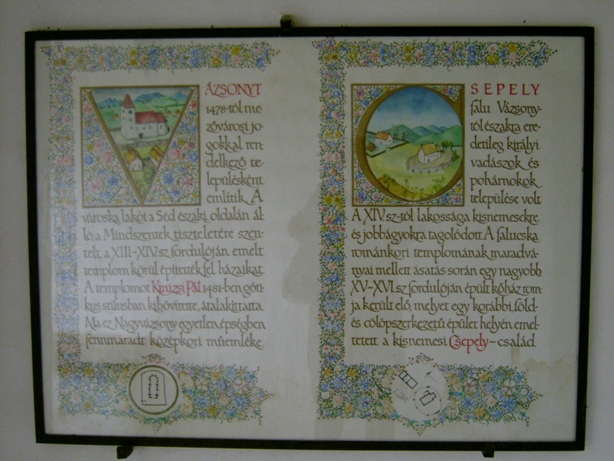 VÁZSONYT
1478-tól me
zővárosi jo-
gokkal ren
delkező te-
lepülésként
említik. A
városka lakói a Séd északi oldalán ál
ló, a Mindszentek tiszteletére szen-
telt, a XIII-XIV.sz. fordulóján emelt
templom körül építették fel házaikat.
A templomot Kinizsi Pál 1481-ben góti
kus stílusban kibővíttette, átalakíttatta.
Ma ez Nagyvázsony egyetlen épségben
fennmaradt középkori műemléke.
CSEPELY
falu Vázsony-
tól északra ere-
detileg királyi
vadászok és
pohárnokok
települése volt.
A XIV.sz-tól lakossága kisnemesekre
és jobbágyokra tagolódott. A falucska
románkori templomának maradvá-
nyai mellett ásatás során egy nagyobb
XV-XVI.sz. fordulóján épült kőház rom-
ja került elő, melyet egy korábbi, föld-
és cölöpszerkezetű épület helyén emel-
tetett a kisnemesi Csepely-család